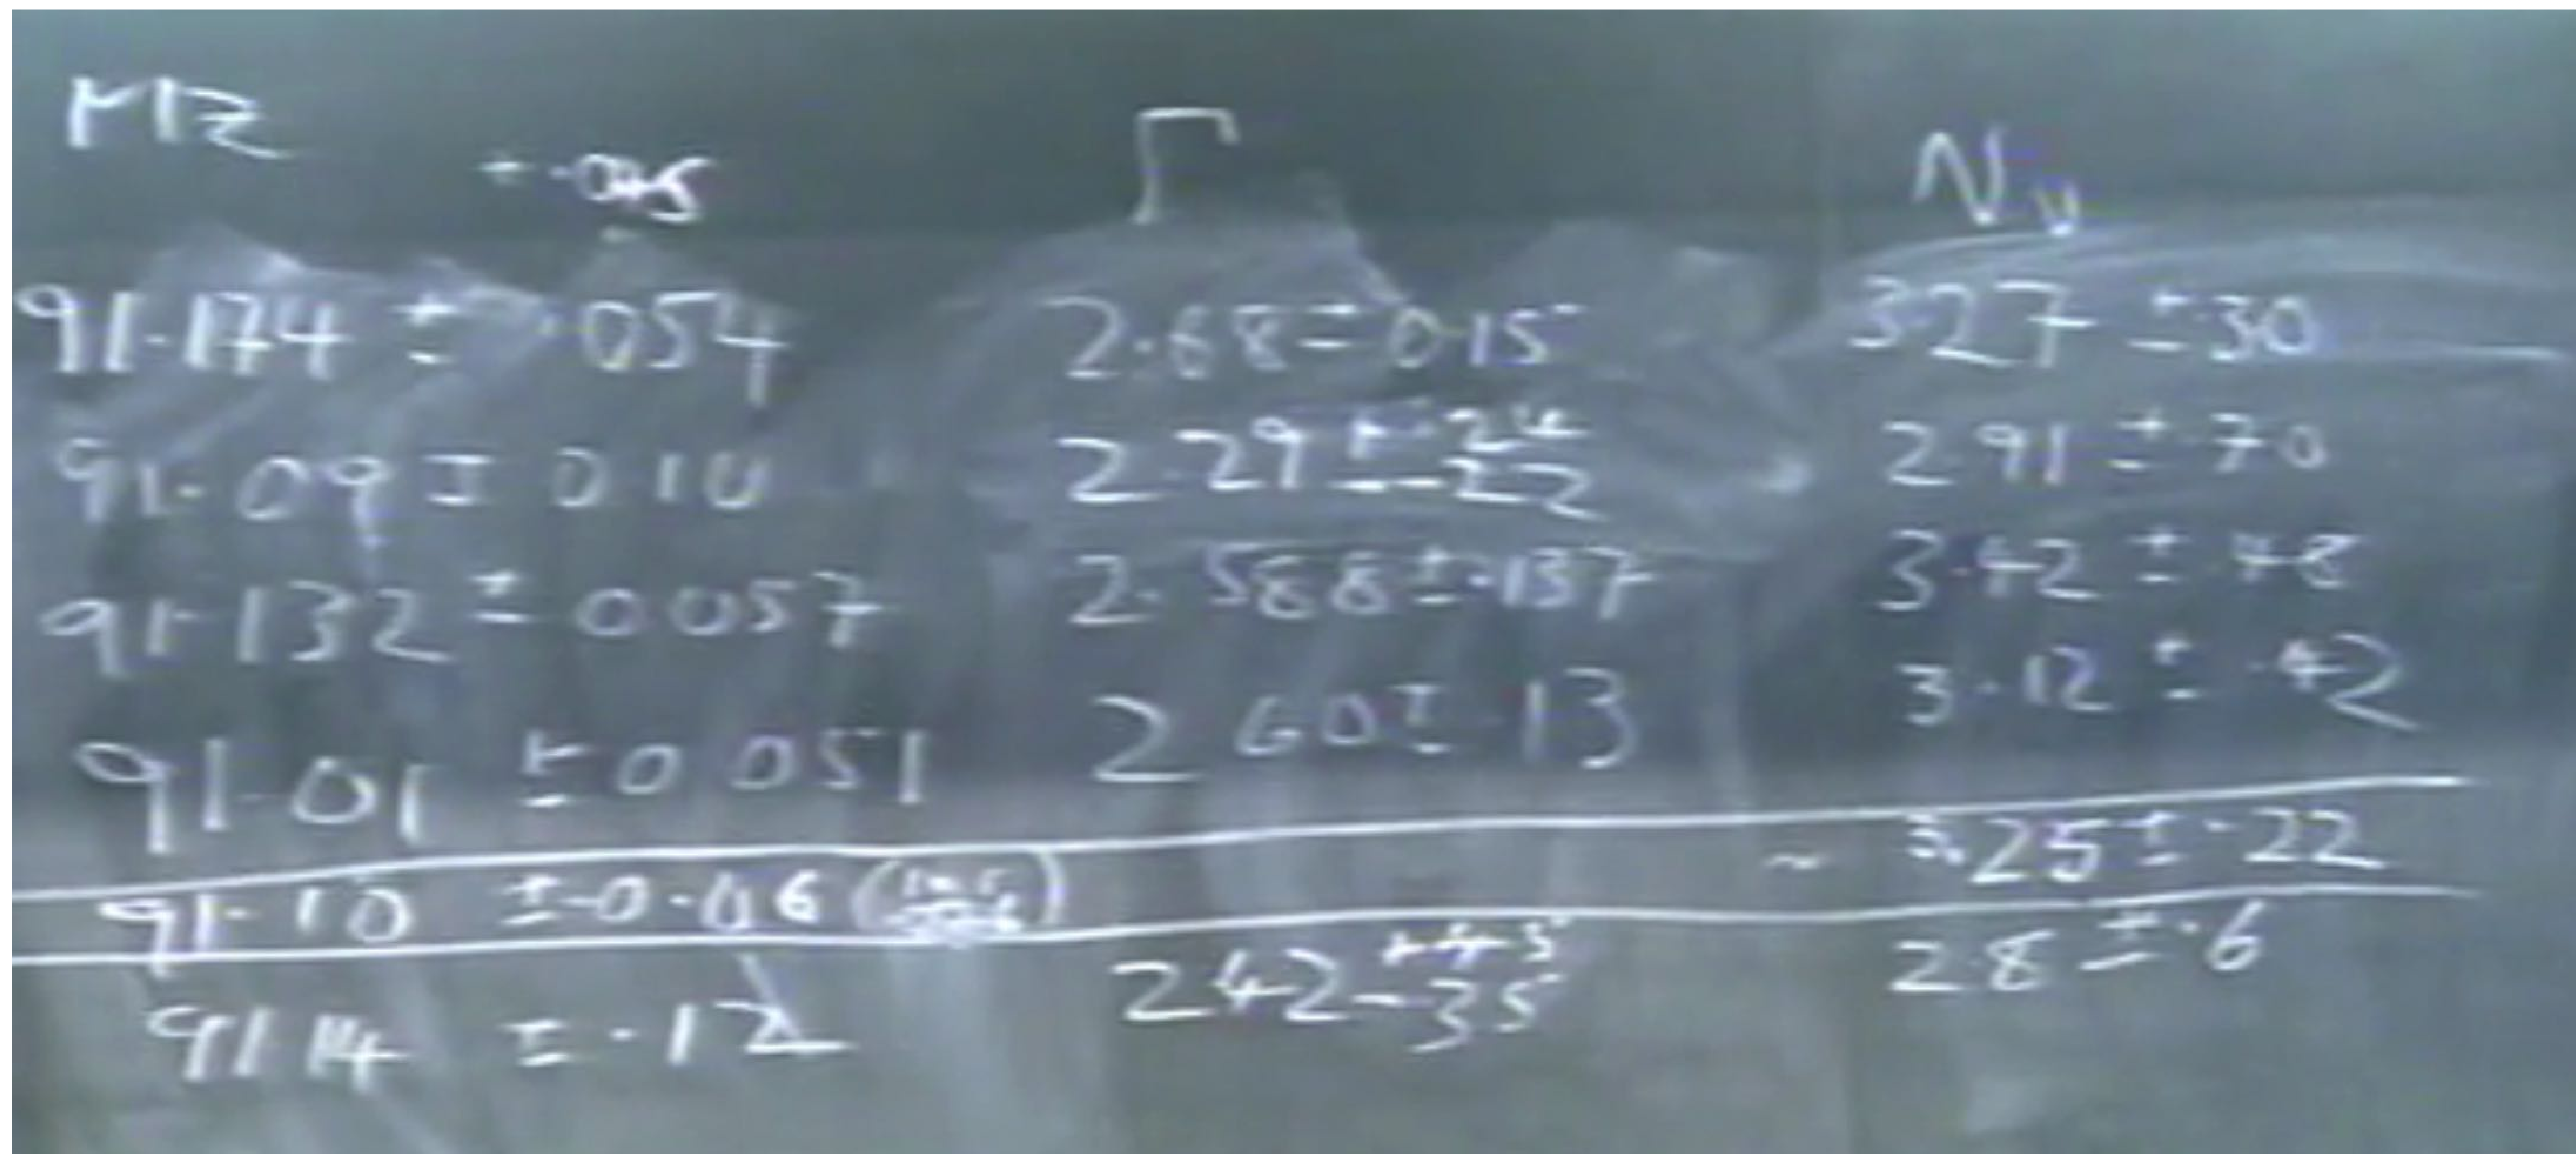 MZ Γ Nν
± .045
91.174 ± .054 2.68 ± 0.15 3.27 ± .30
91.09 ± 0.10 2.29 + .24 - .22 2.91 ± .70
91.132 ± 0.057 2.588 ± .137 3.42 ± .48
91.01 ± 0.051 2.60 ± .13 3.12 ± .42
91.10 ± 0.06 ~ 3.25 ± .22
91.14 ± .12 2.42 + .45 - .35 2.8 ± .6